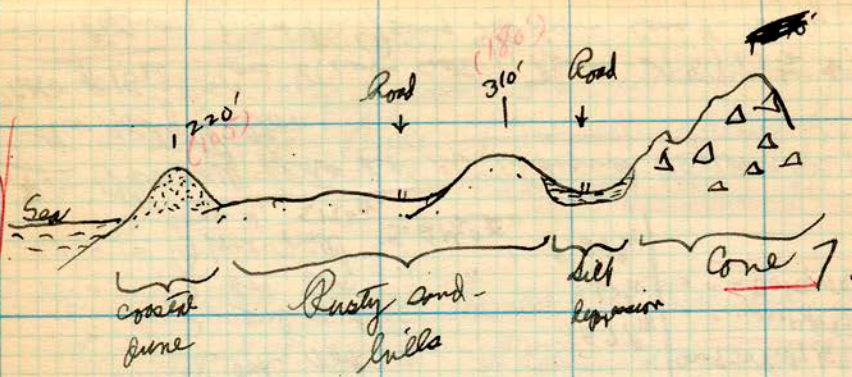 Sea
220'
(105)
Road
(180')
310'
Road
coastal
dune
Rusty sand-
hills
Silt
depression
Cone 7.